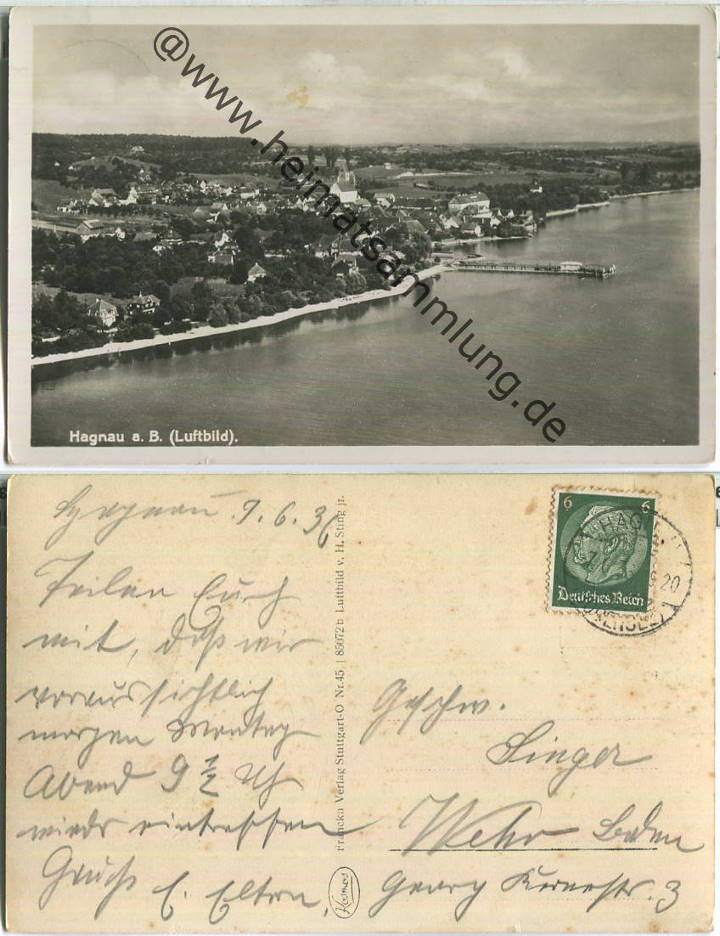 @www.heimatsammlung.de
Hagnau a. B. (Luftbild).
Hagnau 7.6.36
Teilen Euch
mit, daß wir
voraussichtlich
morgen Montag
Abend 9 1/2 Uh
wieder eintreffen
Gruß E. Eltern.
Franckh Verlag Stuttgart-O Nr. 45 | 85072 b Luftbild v. H. Sting jr.
Kosmos
6 6
Deutsches Reich
20
Geschw.
Singer
Wehr Baden
Georg Kernerstr. 3